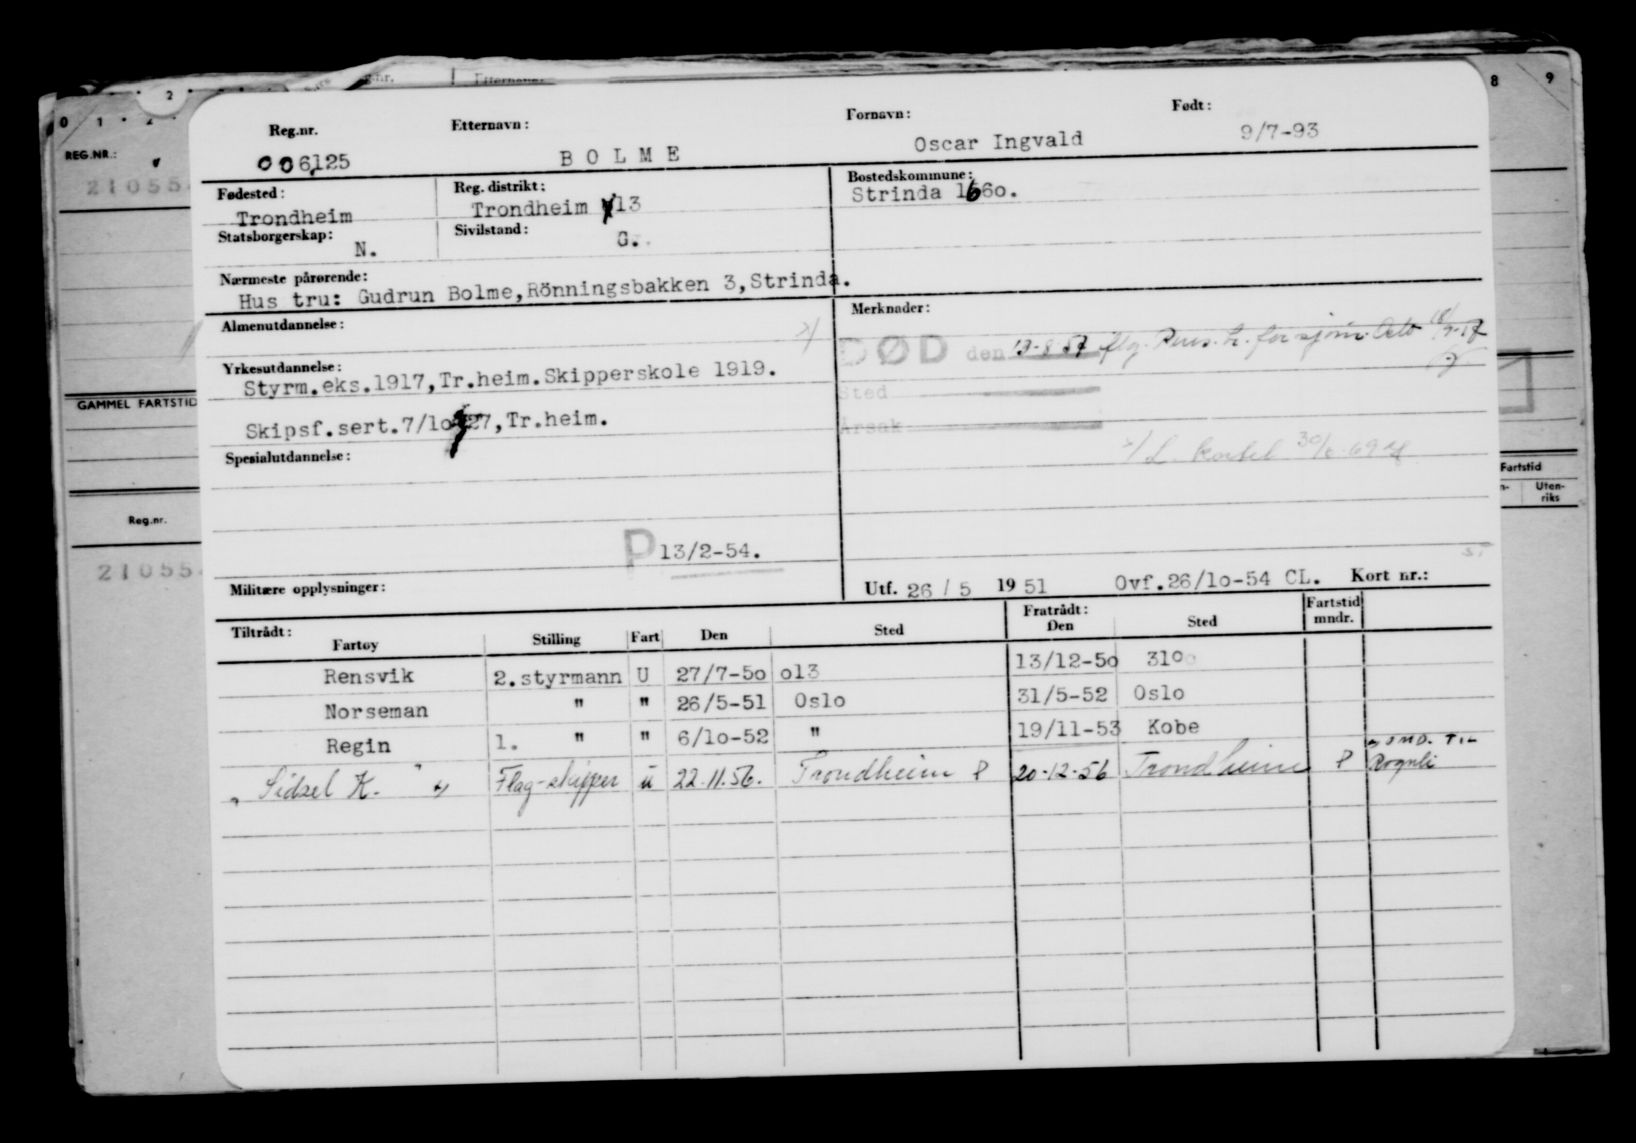 0 1 2
2
8 9
REG.NR.:
21055
Reg.nr. Etternavn: Fornavn: Født:
006125 BOLME Oscar Ingvald 9/7-93
Fødested: Reg. distrikt: Bostedskommune:
Trondheim Trondheim 13 Strinda 1660.
Statsborgerskap: Sivilstand:
N. G.
Nærmeste pårørende:
Hus tru: Gudrun Bolme,Rönningsbakken 3,Strinda.
Almenutdannelse: Merknader:
DØD den 13-8-57 flg. Pens. tr. for sjøm. Oslo 18/9-57
Yrkesutdannelse:
Styrm.eks.1917,Tr.heim.Skipperskole 1919.
Sted
GAMMEL FARTSTID
Skipsf.sert.7/10 27,Tr.heim.
Årsak
Spesialutdannelse:
L. kartel 30/6-69
Fartstid
Uten-
riks
Reg.nr.
P 13/2-54.
21055
Militære opplysninger: Utf. 26 / 5 19 51 Ovf.26/10-54 CL. Kort nr.:
Tiltrådt: Fratrådt: Fartstid
Fartøy Stilling Fart Den Sted Den Sted mndr.
Rensvik 2.styrmann U 27/7-50 013 13/12-50 310
Norseman " " 26/5-51 Oslo 31/5-52 Oslo
Regin 1. " " 6/10-52 " 19/11-53 Kobe
OMD. TIL
"Sidsel K." Flag-skipper u 22.11.56. Trondheim P 20-12-56 Trondheim P Rognli